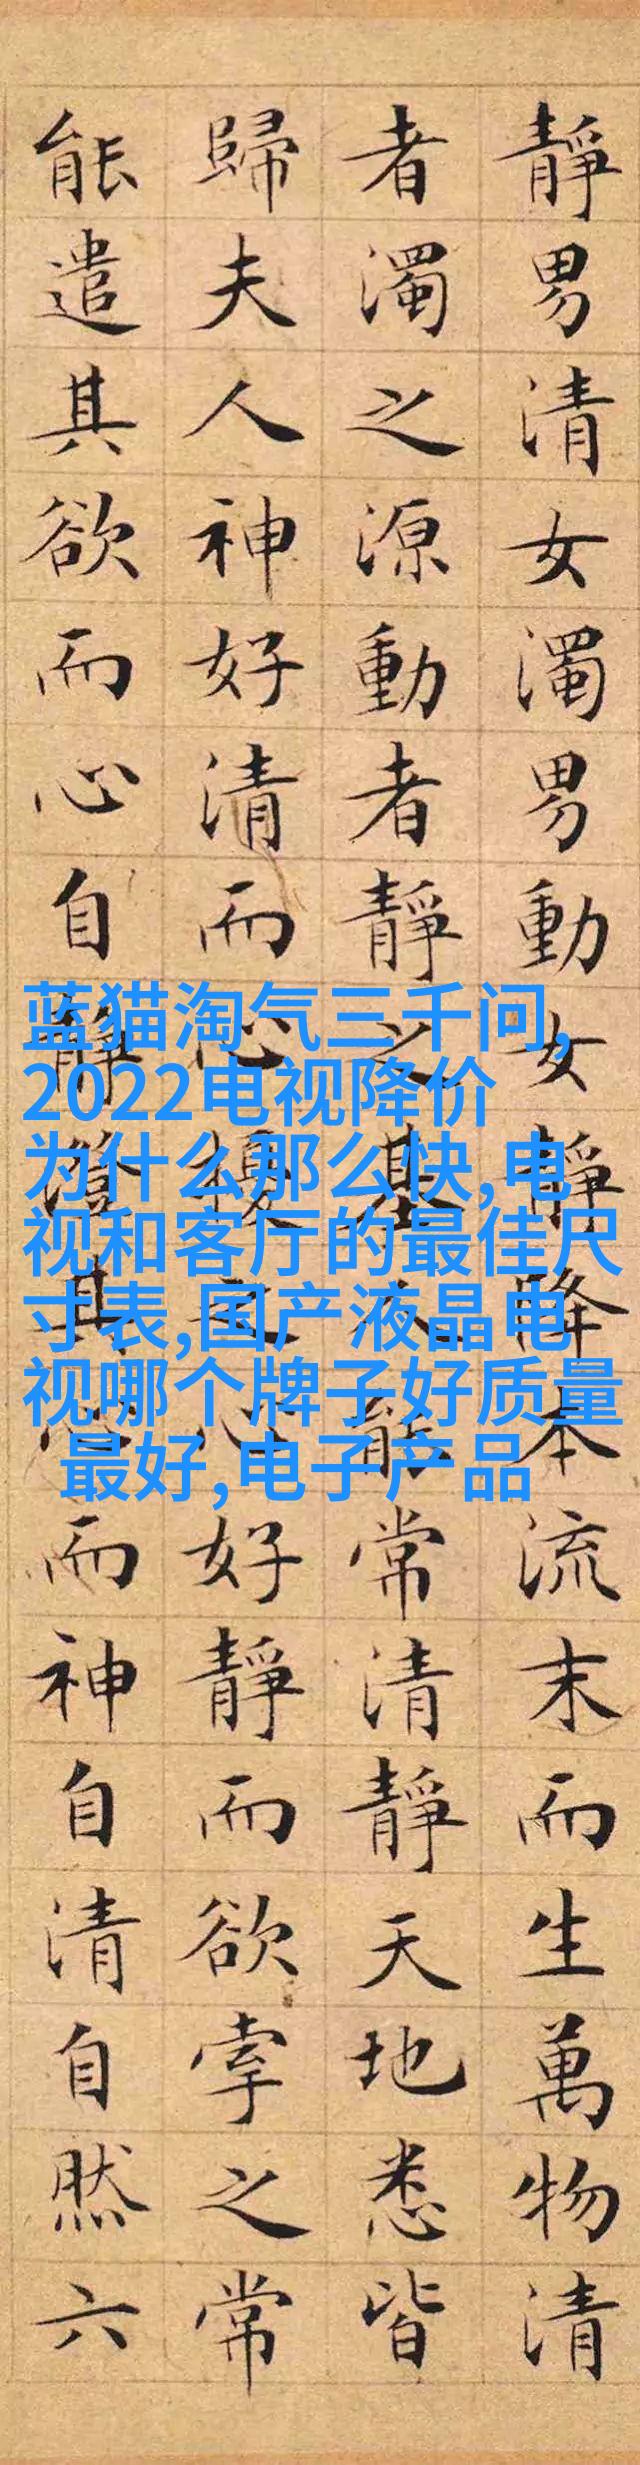 靜男清女濁男動女靜降本流末而生萬物清
者濁之源動者靜之基人能常清靜天地悉皆
歸夫人神好清而心擾之心好靜而欲牽之常
能遣其欲而心自靜澄其心而神自清自然六
蓝猫淘气三千问,
2022电视降价
为什么那么快,电
视和客厅的最佳尺
寸表,国产液晶电
视哪个牌子好质量
最好,电子产品